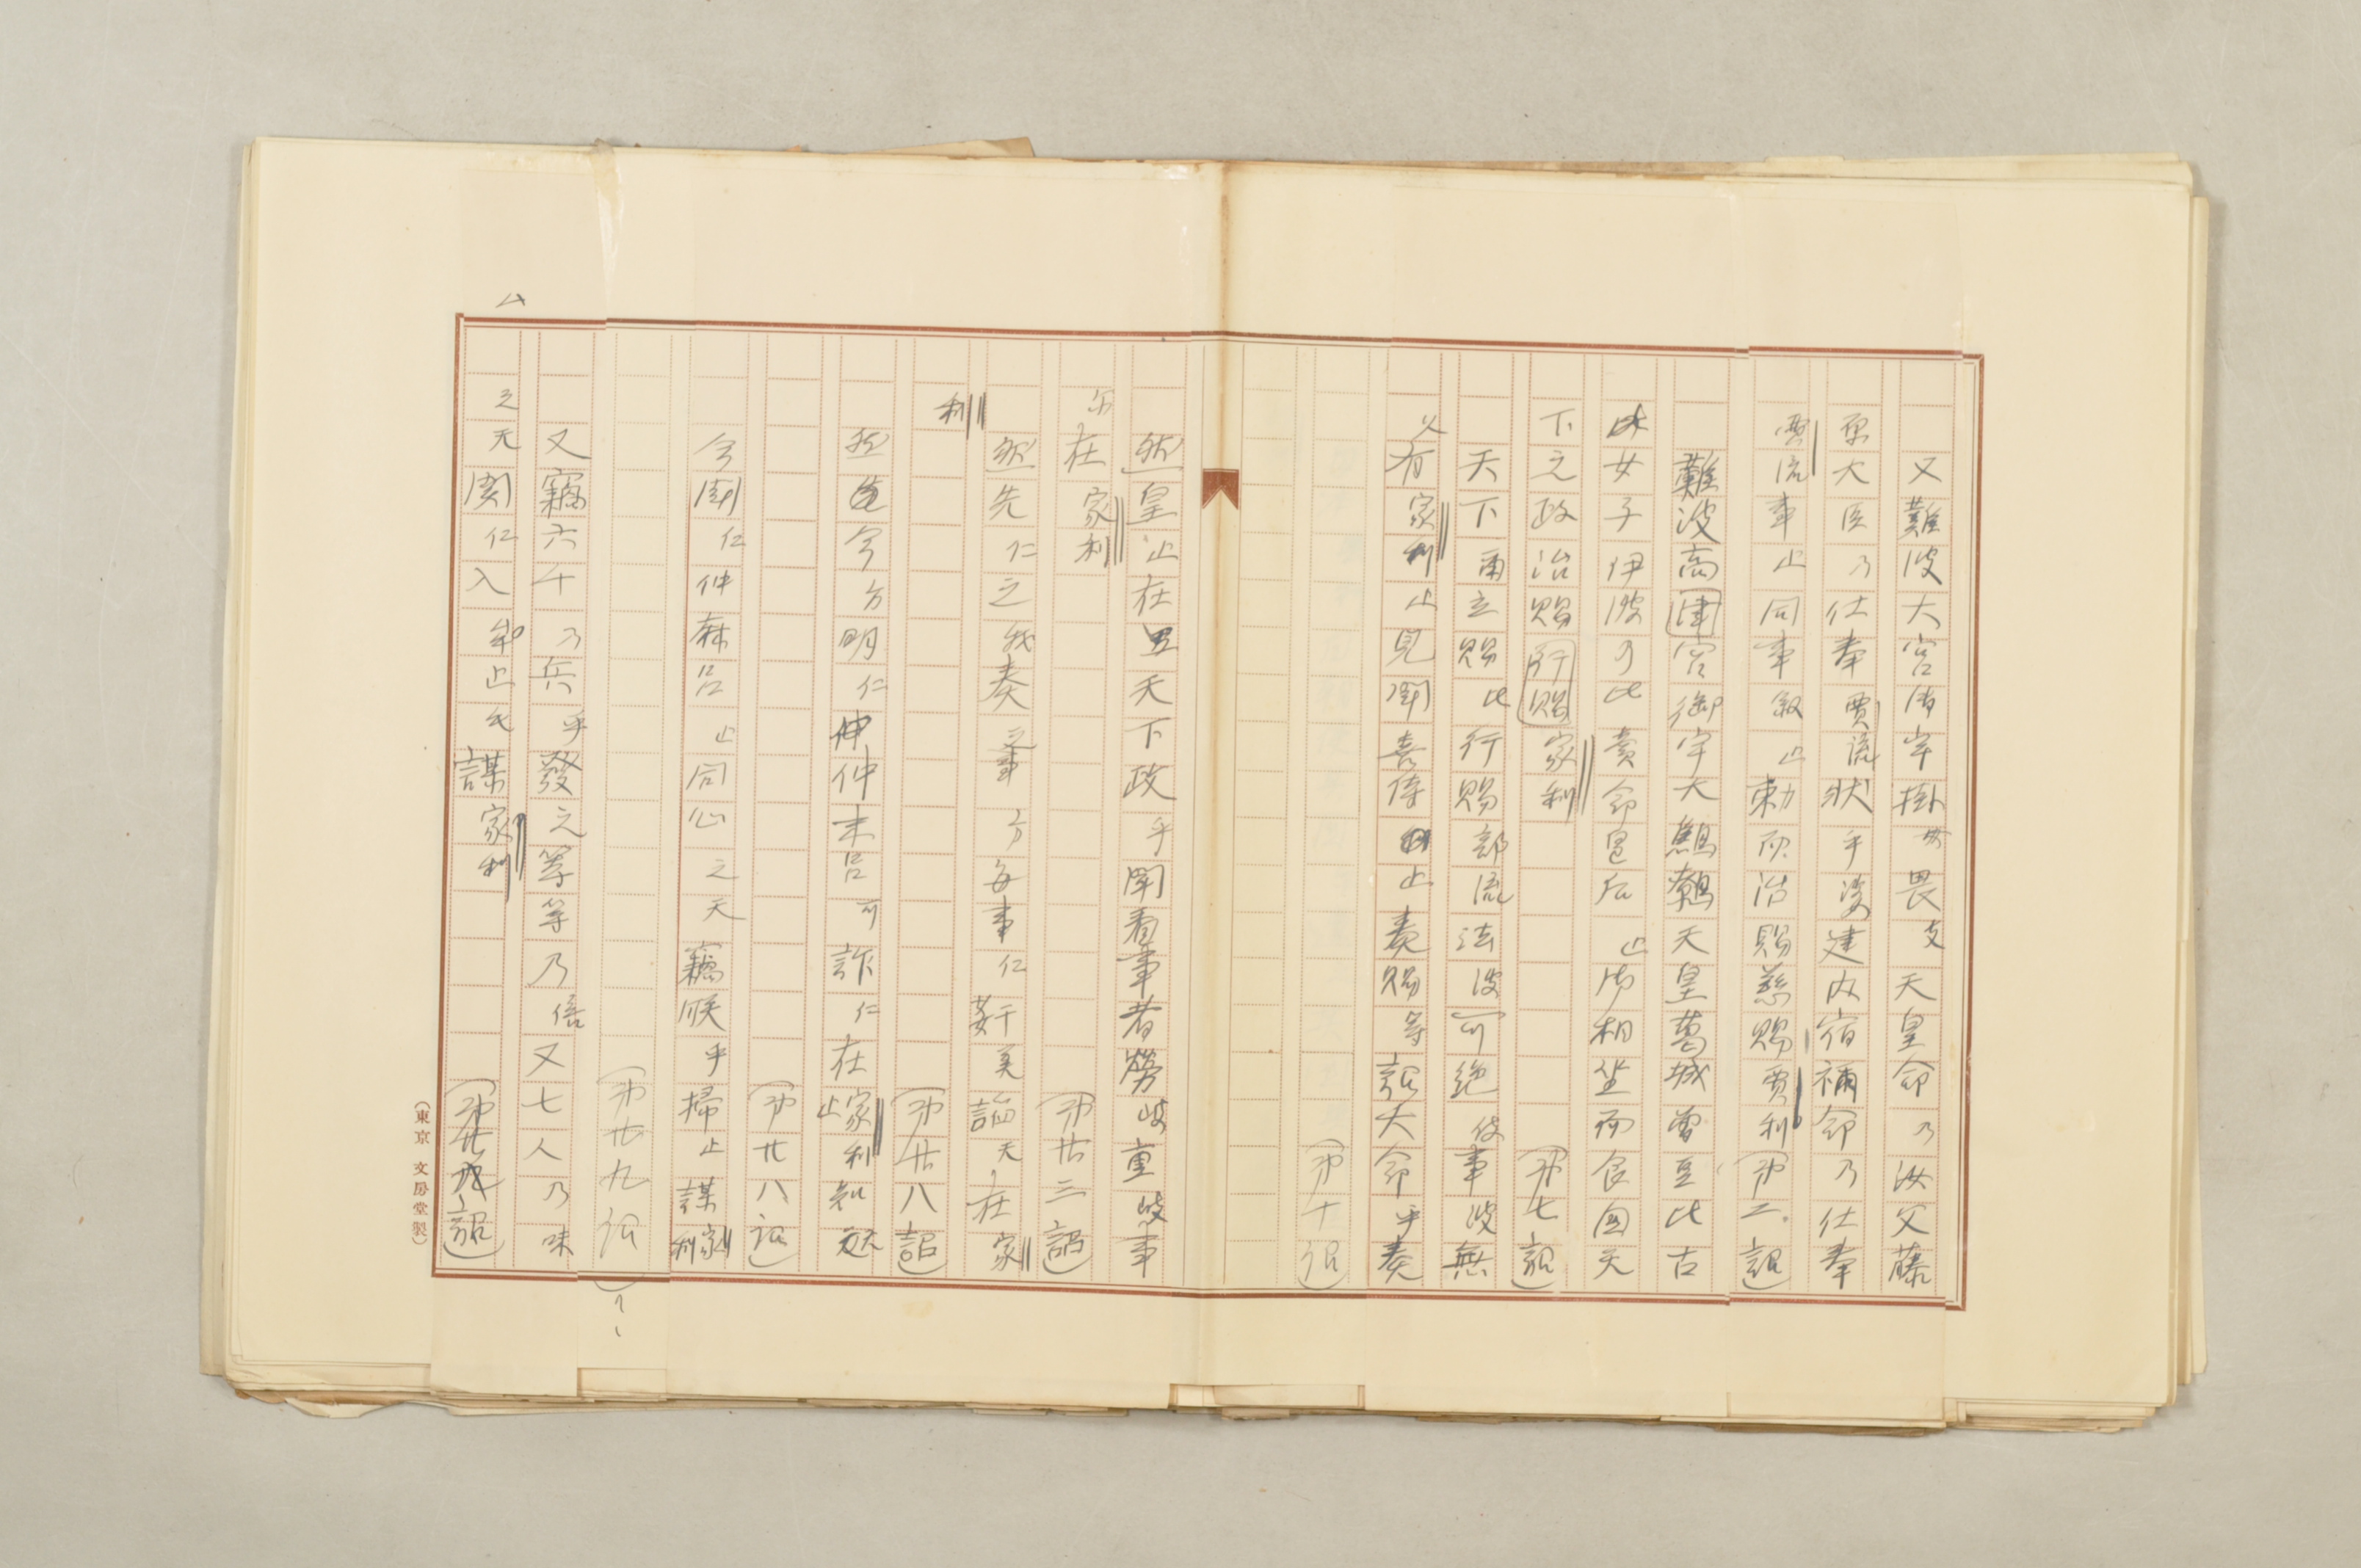 又難波大宮御宇掛母畏支天皇命乃汝父藤
原大臣乃仕奉賈流狀乎婆建内宿禰命乃仕奉
賈流事止同事敍止勅而治賜慈賜賈利(第二詔)
難波高津宮御宇大鷦鷯天皇葛城曽豆比古
女子伊波乃比賣命皇后止御相坐而食国天
下之政治賜行賜家利(第七詔)
天下爾立賜比行賜部流法波可絶伎事波無
久有家利止見聞喜侍止奏賜等詔大命乎奏
(第十詔)
然皇止在弖天下政乎聞看事者勞岐重岐事
尓在家利(第廿三詔)
然先仁之我奏之事方毎事仁姧美謟天在家
利(第廿八詔)
然今方明仁仲末呂可詐仁在家利止知
(第廿八詔)
今聞仁仲麻呂止同心之天竊朕乎掃止謀家利
(第廿九詔)
又竊六千乃兵乎發之等等乃信又七人乃味
之天関仁入牟止毛謀家利(第廿九詔)
(東京 文房堂製)